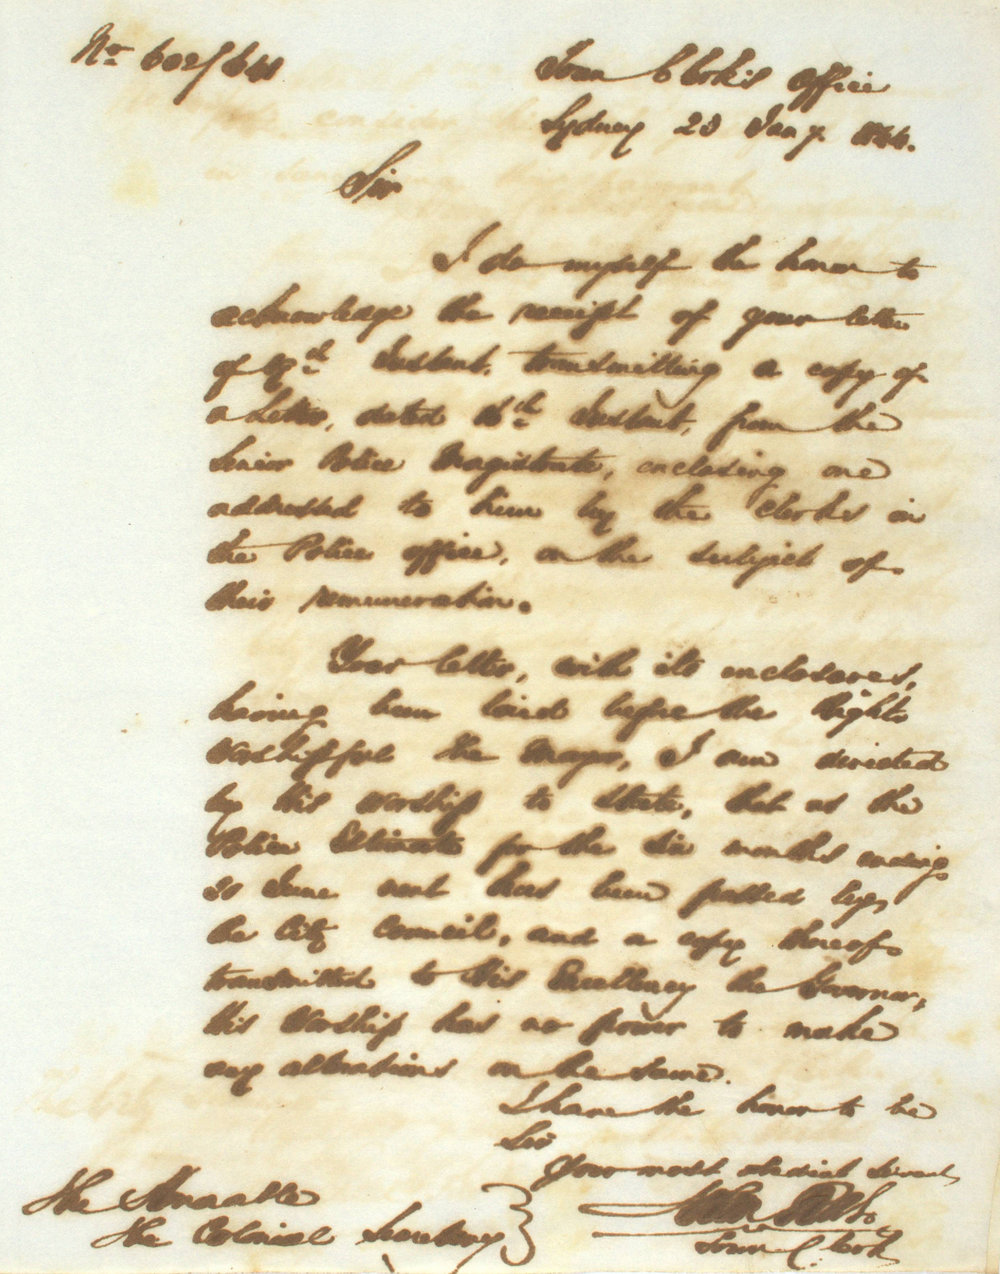 No. 602/641
Town Clerk's Office
Sydney 23 Jany.
Sir
I do myself the honor to
acknowledge the receipt of your letter
of Instant, transmitting a copy of
a Letter, dated 16th Instant, from the
Senior Police Magistrate, enclosing one
addressed to him by the Clerks in
the Police office, on the subject of
their remuneration.
Your letter, with its enclosures,
having been laid before the Right
Worshipful the Mayor, I am directed
by His Worship to State, that as the
Police Estimate for the Six months ending
30 June next has been passed by
the City Council, and a copy thereof
transmitted to His Excellency the Governor,
His Worship has no power to make
any alterations in the same.
I have the honor to be
Sir
Your most obedient Servant
John
Town Clerk
The Honorable
The Colonial Secretary